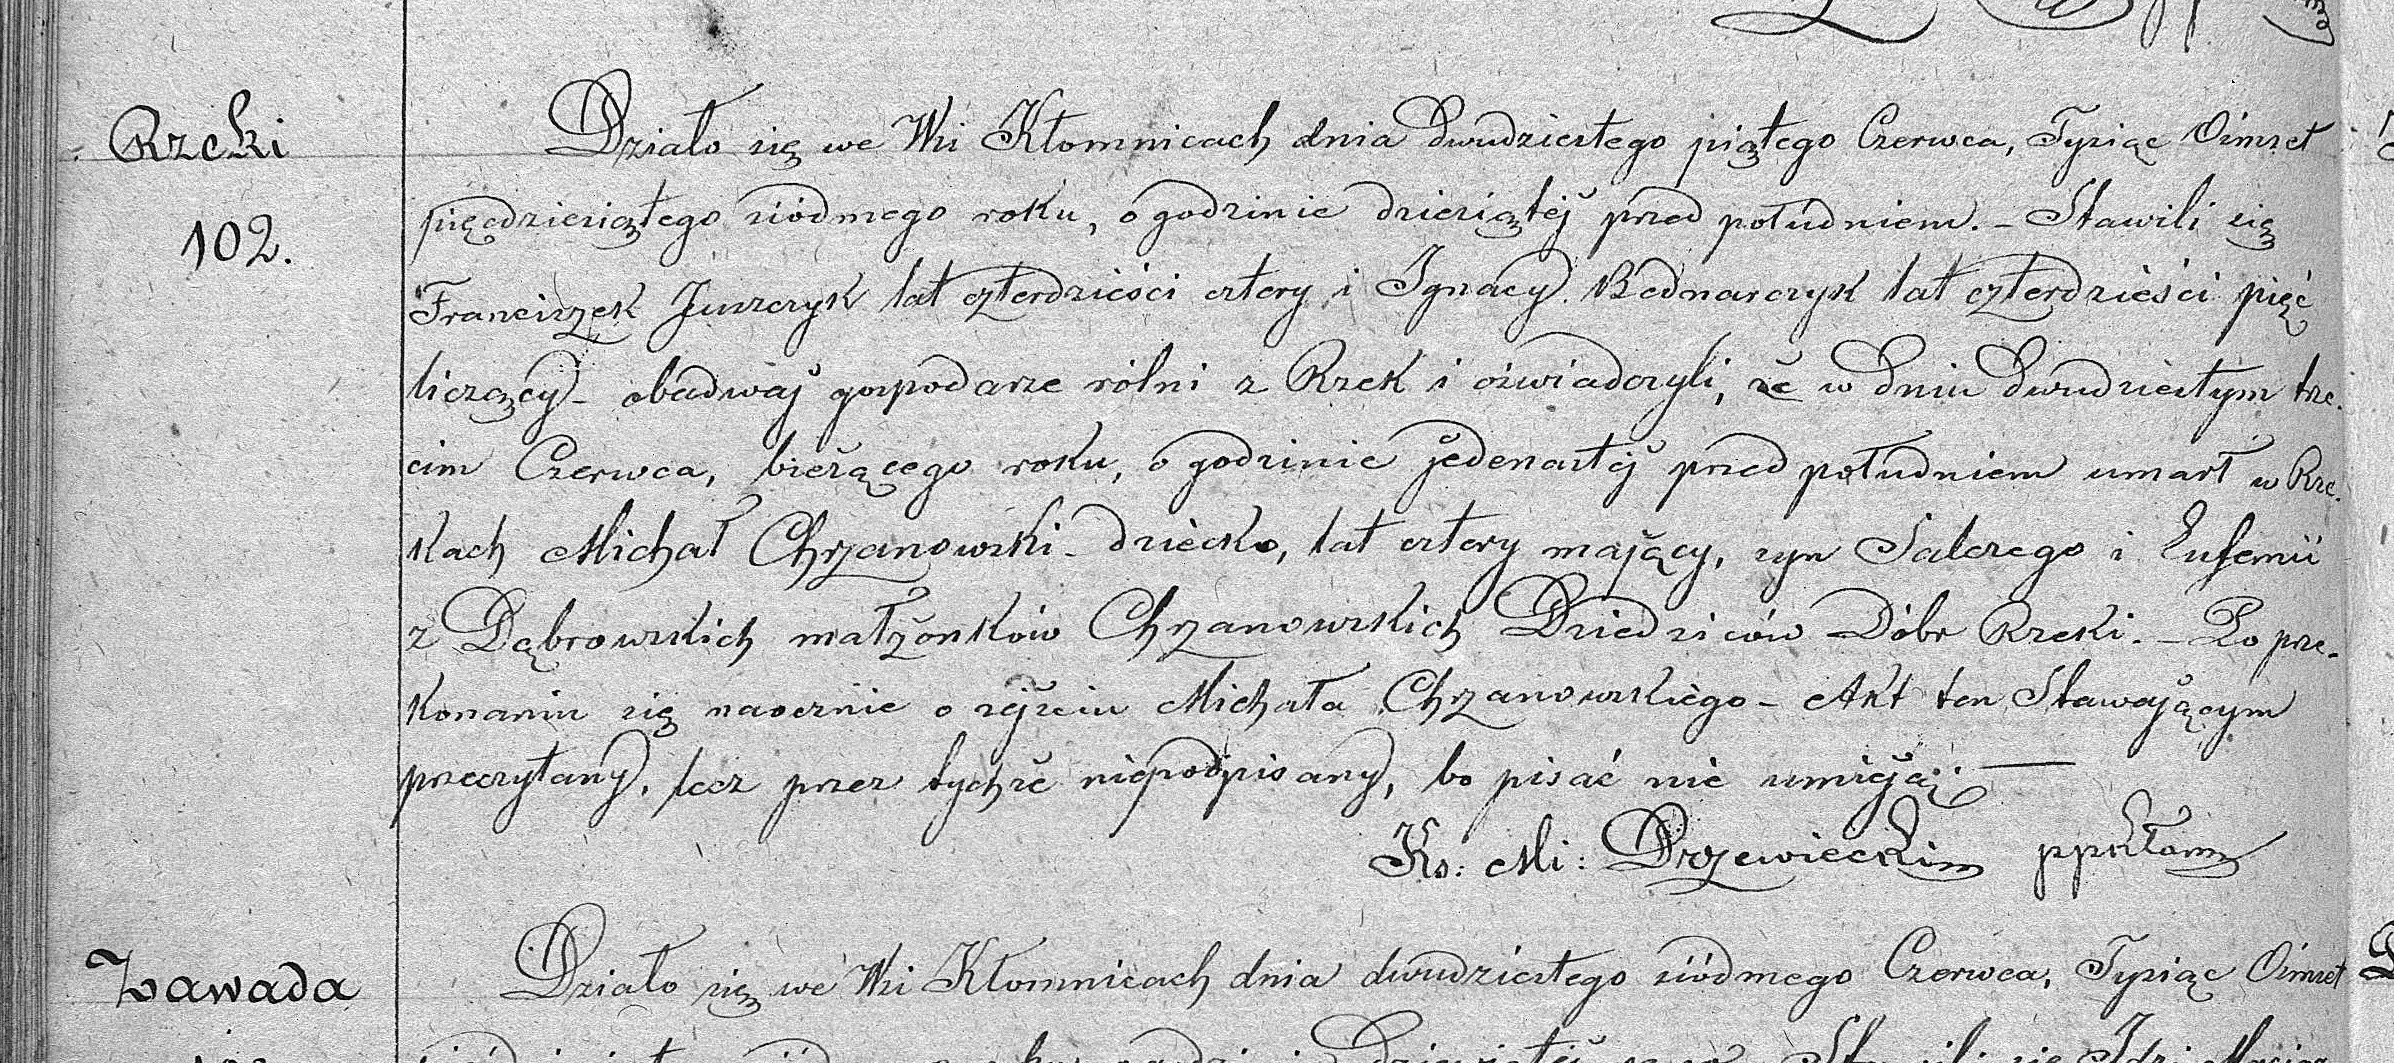 Rzeki
102.
Działo się we Wsi Kłomnicach dnia dwudziestego piątego Czerwca, Tysiąc Ośmset
pięćdziesiątego siódmego roku, o godzinie dziesiątéj przed południem. – Stawili się
Franciszek Juszczyk lat czterdzieści cztery i Ignacy Bednarczyk lat czterdzieści pięć
liczący – obadwaj gospodarze rólni z Rzek i oświadczyli, że w dniu dwudziestym trze-
cim Czerwca, bieżącego roku, o godzinie jedenastéj przed południem umarł w Rze-
kach Michał Chrzanowski – dziecko, lat cztery mający, syn Salezego i Eufemii
z Dąbrowskich małżonków Chrzanowskich Dziedziców Dóbr Rzeki. – Po prze-
konaniu się naocznie o zejściu Michała Chrzanowskiego – Akt ten Stawającym
przeczytany, lecz przez tychże niepodpisany, bo pisać nie umieją. —
Ks: Mi: Drzewiecki
Zawada
Działo się we Wsi Kłomnicach dnia dwudziestego siódmego Czerwca, Tysiąc Ośmset